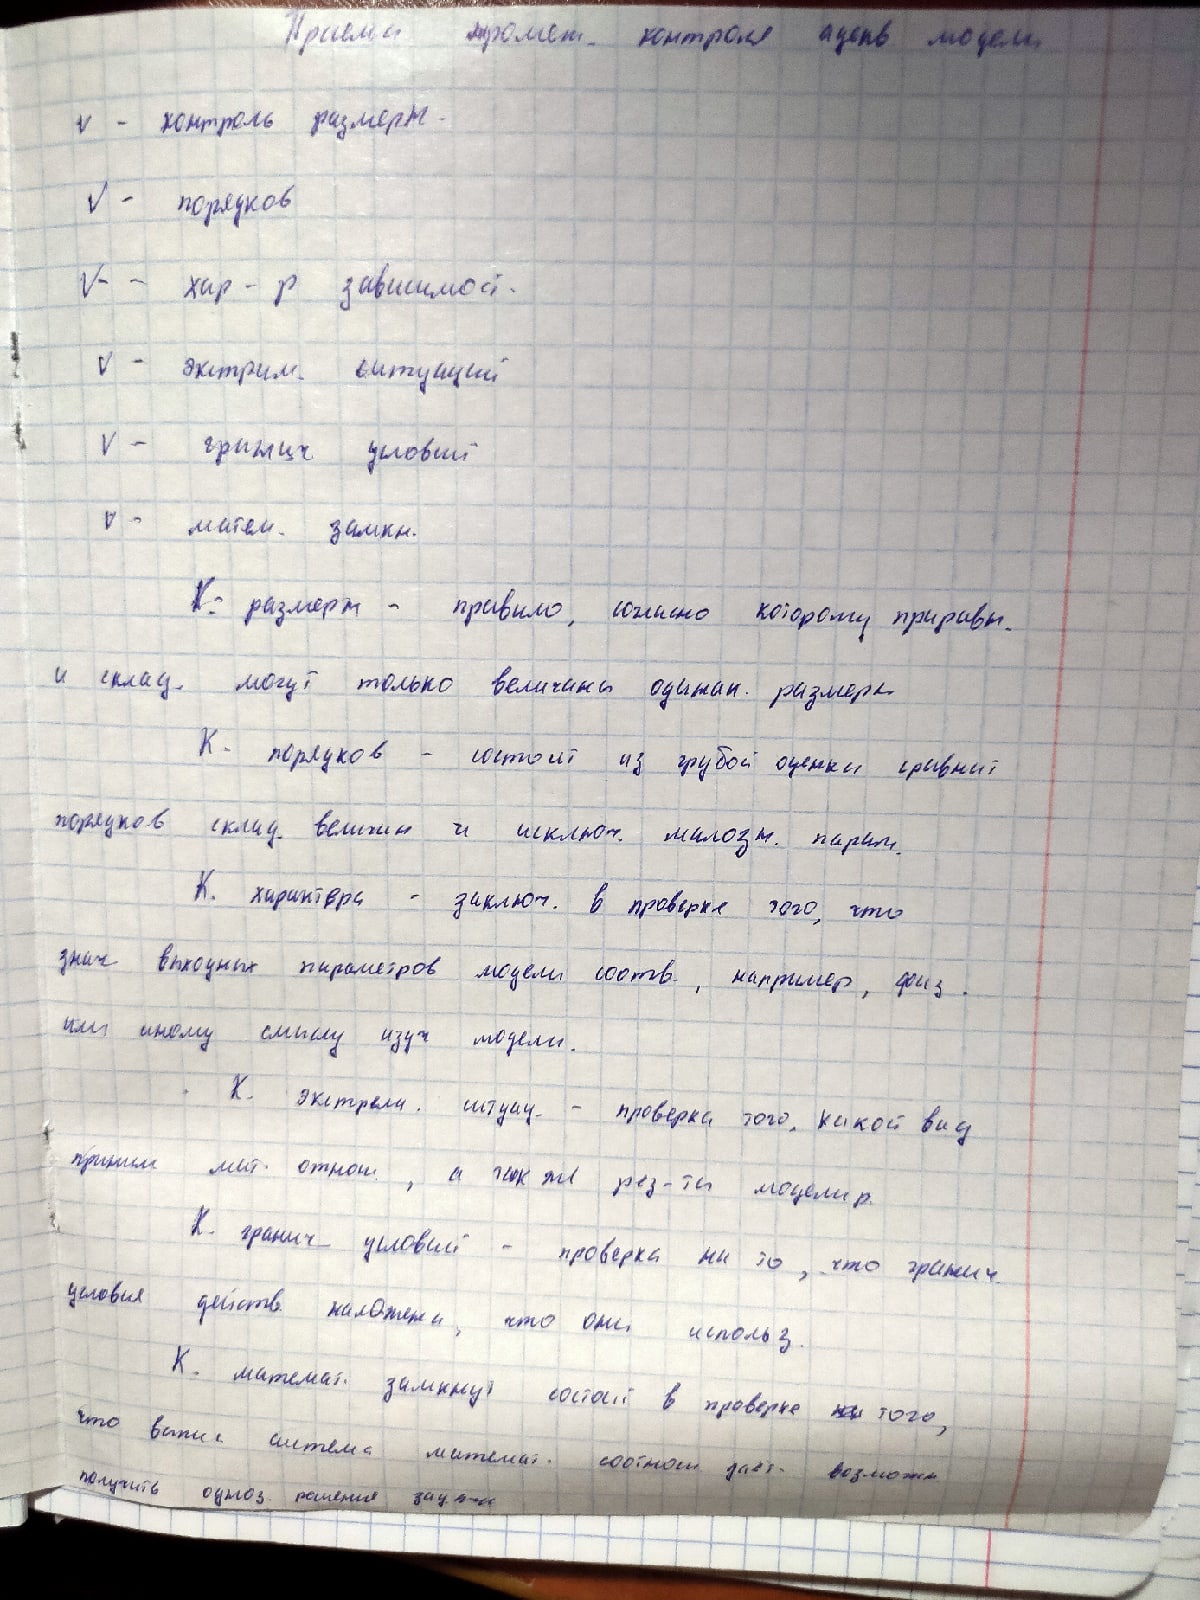 Приемы промеж. контроля адекв модели
v - контроль размерн.
v - порядков
v - хар-р зависимост.
v - экстрим. ситуаций
v - границ условий
v - матем. замкн.
К. размерн - правило, согласно которому приравн.
и склад. могут только величины одинак. размерн
К. порядков - состоит из грубой оценки сравнит
порядков склад. величин и исключ. малозн. парам.
К. характера - заключ. в проверке того, что
знач выходных параметров модели соотв., например, физ.
или иному смыслу изуч модели.
К. экстрем. ситуац. - проверка того, какой вид
приним мат. отнош., а так же рез-ты моделир.
К. гранич. условий - проверка на то, что гранич.
условия действ. наложены, что они использ.
К. математ. замкнут состоит в проверке того,
что система математ. соотнош дает. возможн
получить одноз. решение задачи